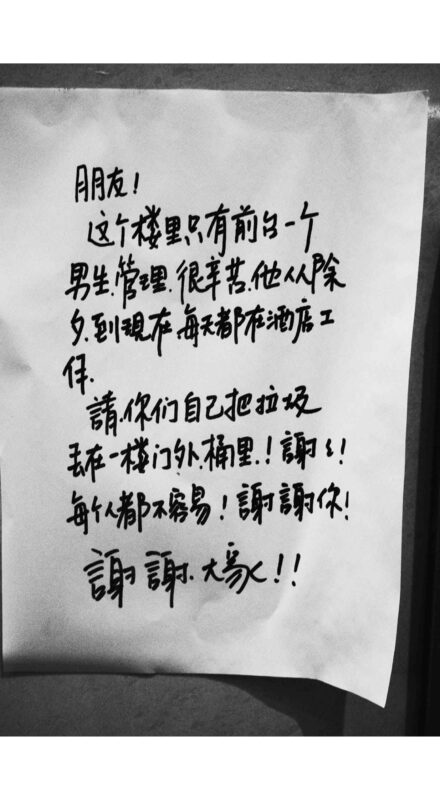 朋友！
这个楼里只有前台一个
男生.管理.很辛苦.他从除
夕.到現在.每天都在酒店工
作.
請.你们自己把垃圾
丢在一楼门外.桶里.！謝々！
每个人都不容易！謝謝你！
謝謝.大家！！